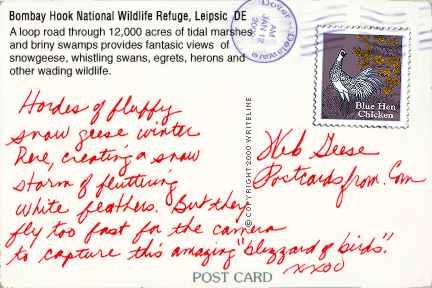 Bombay Hook National Wildlife Refuge, Leipsic DE
A loop road through 12,000 acres of tidal marshes
and briny swamps provides fantasic views of
snowgeese, whistling swans, egrets, herons and
other wading wildlife.
Dover Delaware
AM
JAN
Blue Hen
Chicken
Hordes of fluffy
snow geese winter
Here, creating a snow
storm of fluttring
white feathers. But they
fly too fast for the camera
to capture this amazing "blizzard of birds".
xxoo
© COPYRIGHT 2000 WRITELINE
Web Geese
Postcardsfrom.Com
POST CARD